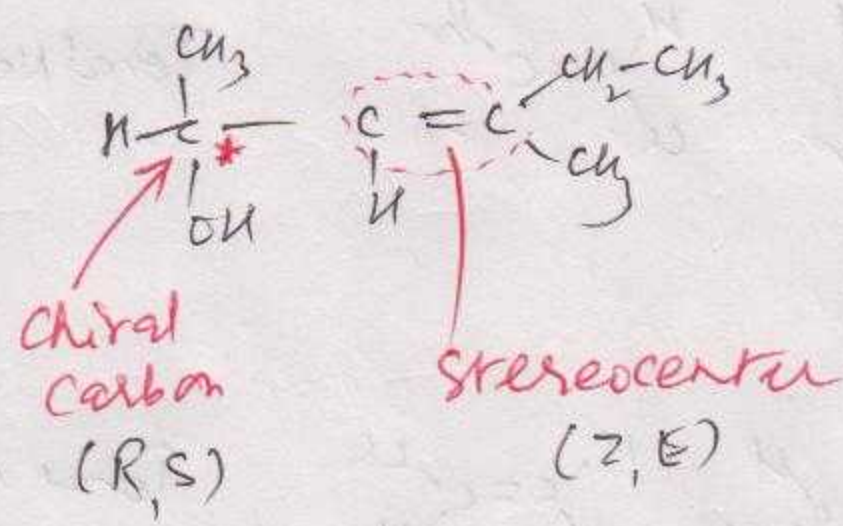 CH3
H-C* — C = C
CH2-CH3
CH3
OH
H
Chiral
Carbon
(R,S)
Stereocenter
(Z,E)